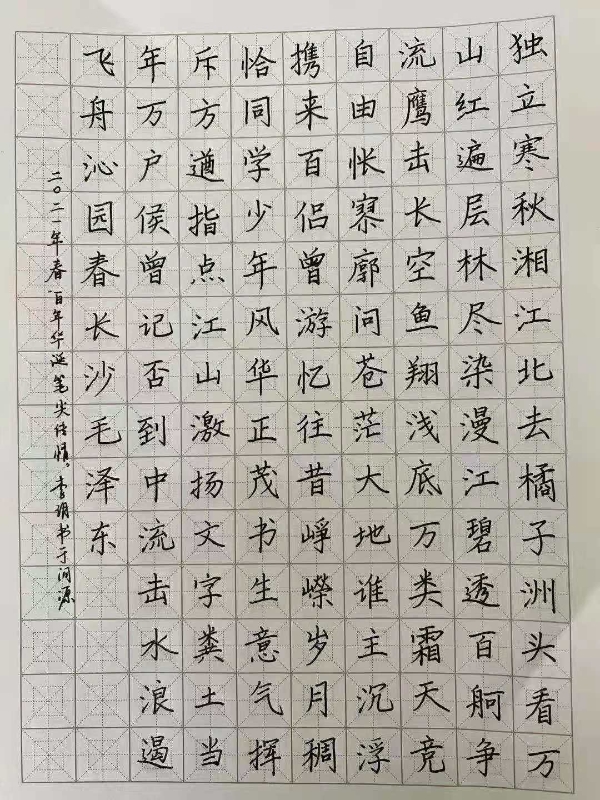 独立寒秋湘江北去橘子洲头看万
山红遍层林尽染漫江碧透百舸争
流鹰击长空鱼翔浅底万类霜天竞
自由怅寥廓问苍茫大地谁主沉浮
携来百侣曾游忆往昔峥嵘岁月稠
恰同学少年风华正茂书生意气挥
斥方遒指点江山激扬文字粪土当
年万户侯曾记否到中流击水浪遏
飞舟沁园春长沙毛泽东
二〇二一年春百年华诞笔尖传情。李书于问源